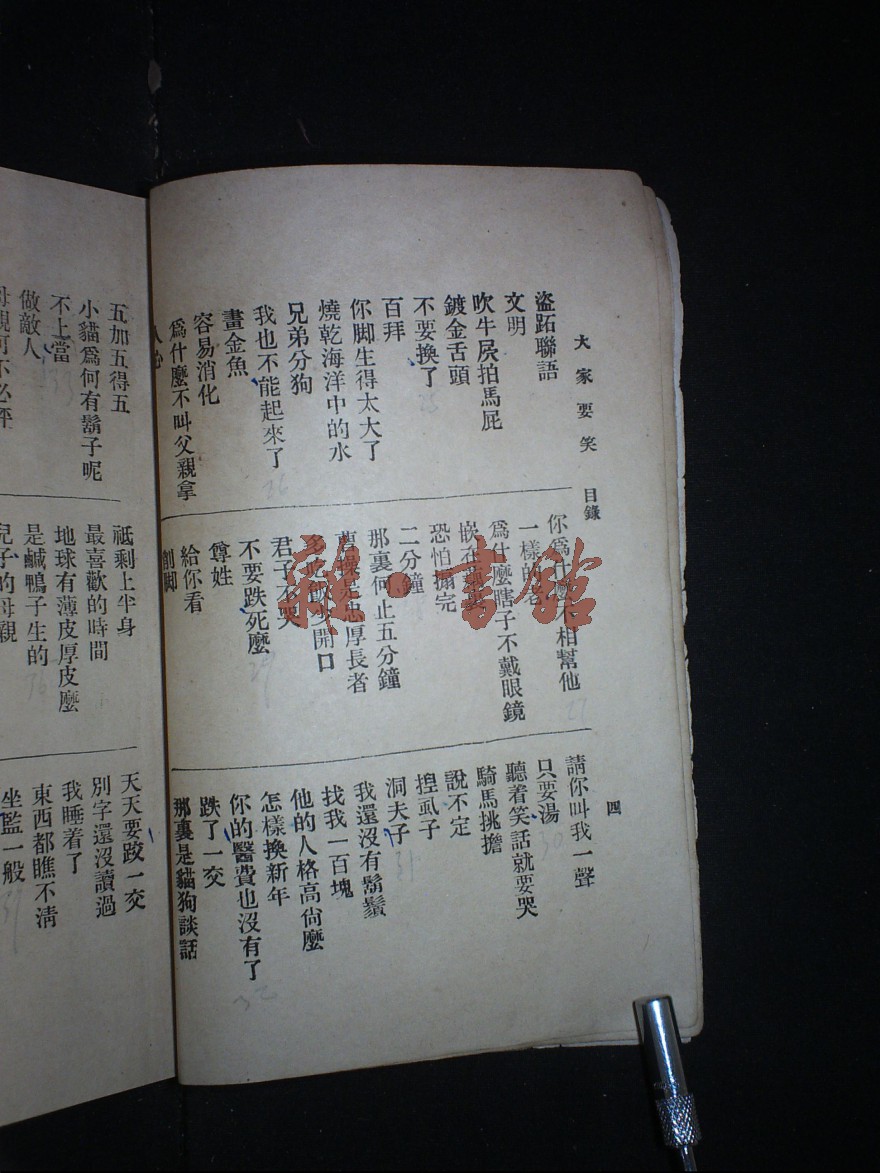 大家要笑 目錄 四
盜跖聯語
文明
吹牛屄拍馬屁
鍍金舌頭
不要換了
百拜
你脚生得太大了
燒乾海洋中的水
兄弟分狗
我也不能起來了
畫金魚
容易消化
爲什麼不叫父親拿
人心
你爲什麼不相幫他
一樣的老
爲什麼瞎子不戴眼鏡
恐怕搧完
二分鐘
那裏何止五分鐘
曹操是忠厚長者
多吃飯少開口
君子不哭
不要跌死麼
尊姓
給你看
削脚
請你叫我一聲
只要湯
聽着笑話就要哭
騎馬挑擔
說不定
揑虱子
洞夫子
我還沒有鬍鬚
找我一百塊
他的人格高尙麼
怎樣換新年
你的醫費也沒有了
跌了一交
那裏是貓狗談話
五加五得五
小貓爲何有鬍子呢
不上當
做敵人
祗剩上半身
最喜歡的時間
地球有薄皮厚皮麼
是鹹鴨子生的
兒子的母親
天天要跤一交
別字還沒讀過
我睡着了
東西都瞧不淸
坐監一般
雜·書館